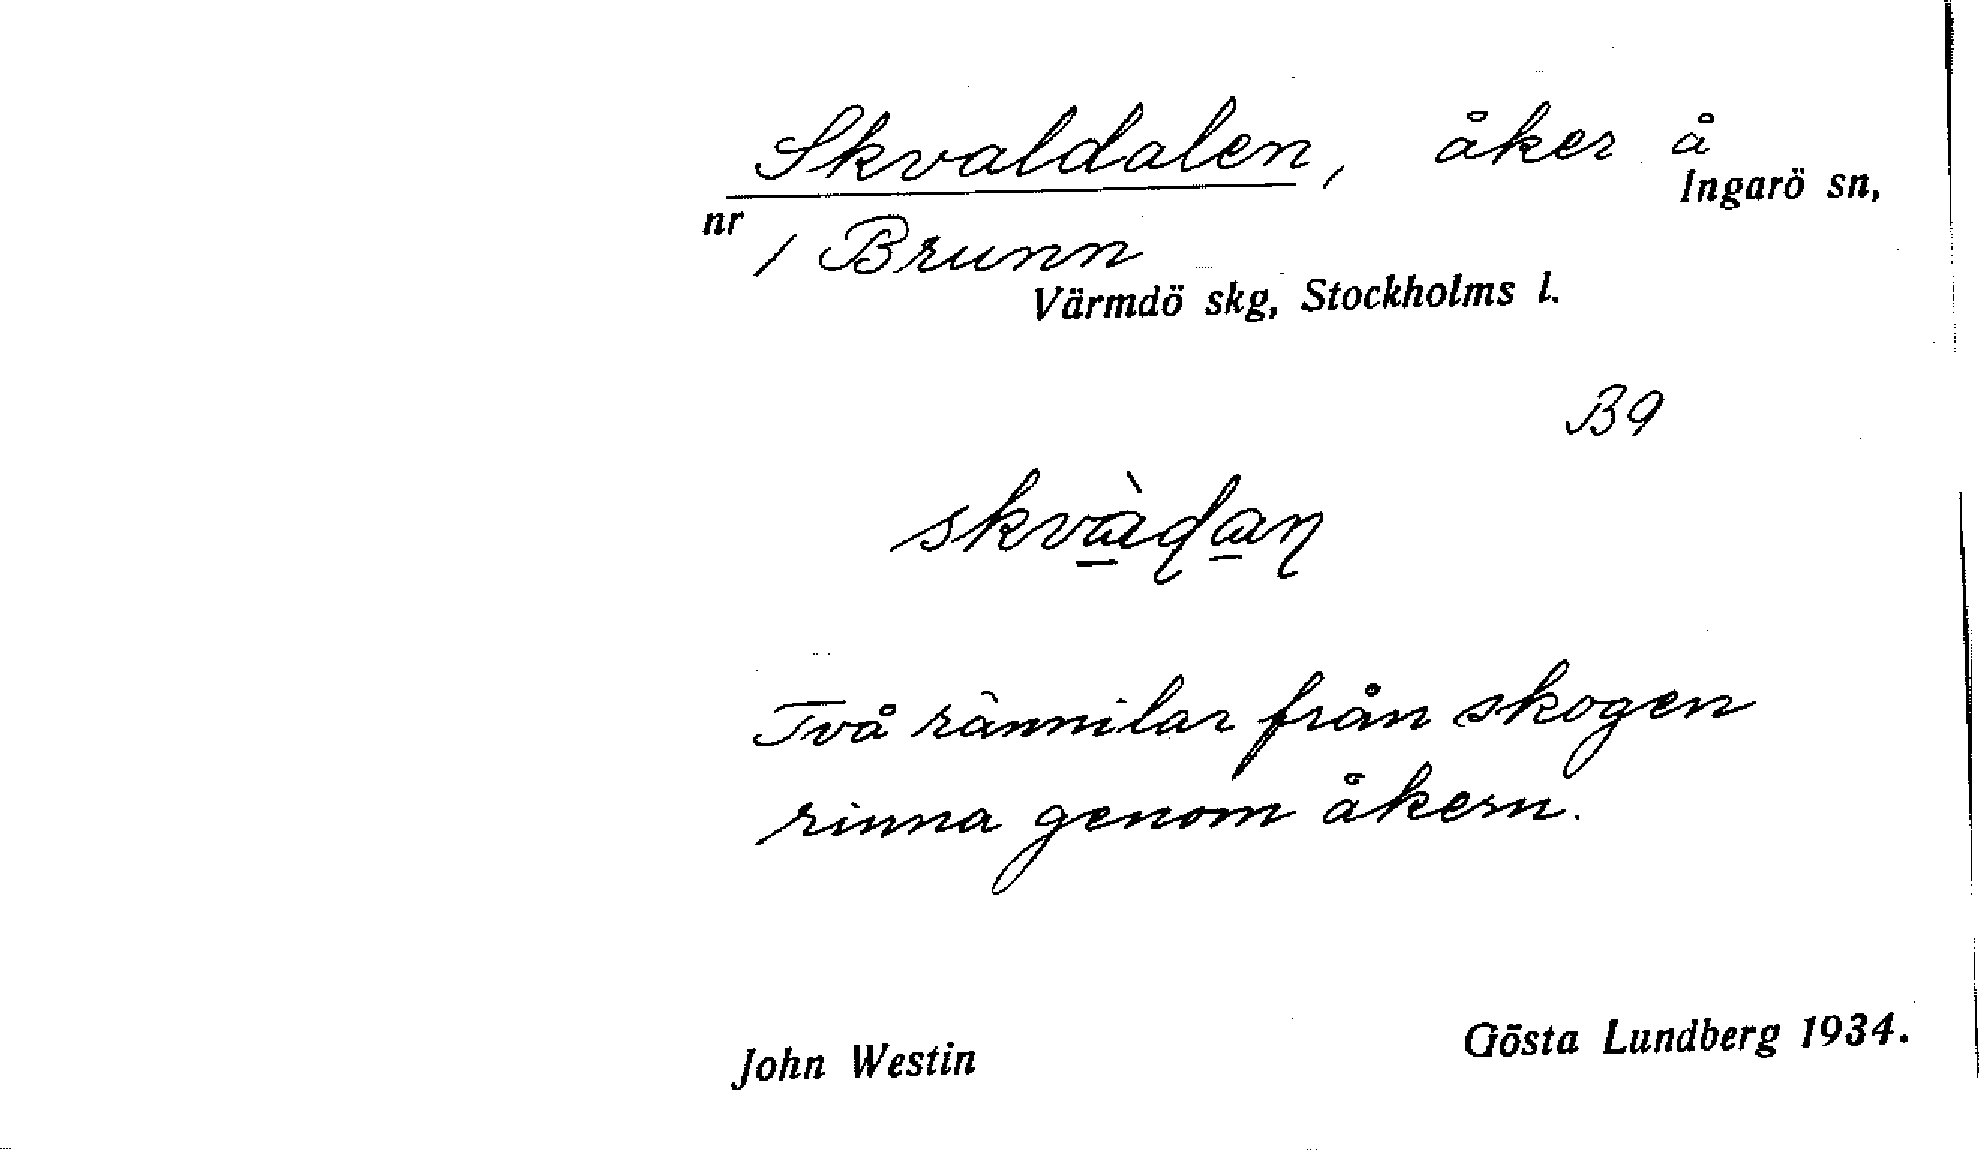 Skvaldalen, åker å
Ingarö sn,
nr 1 Brunn
Värmdö skg, Stockholms l.
B9
skvà̱ɖa̱ɳ
Två rännilar från skogen
rinna genom åkern.
John Westin
Gösta Lundberg 1934.